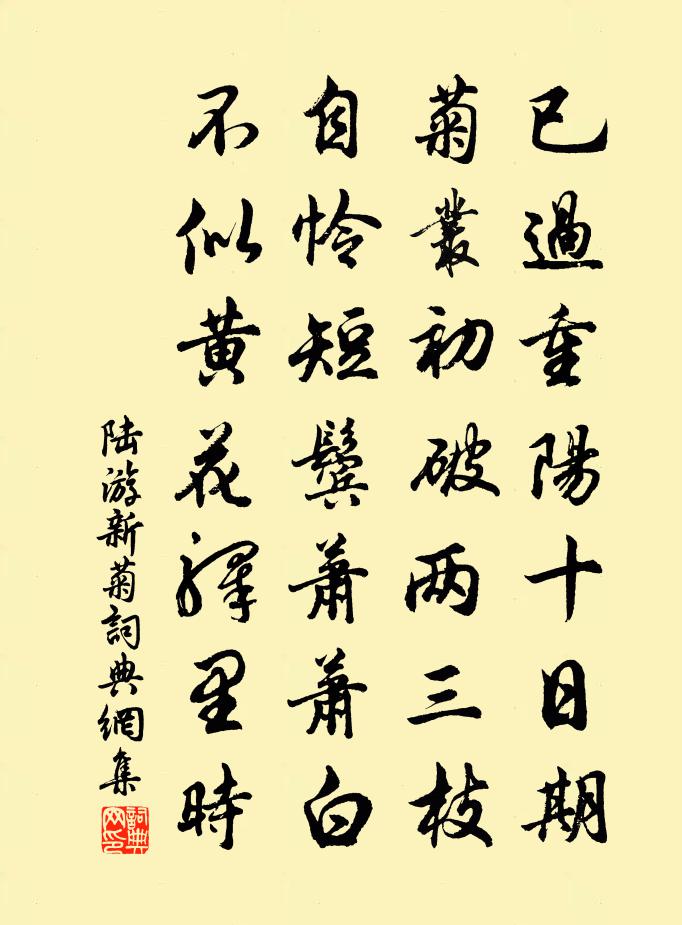 已過重陽十日期
菊叢初破两三枝
自怜短鬢蕭蕭白
不似黄花驛里時
陆游新菊詞典網集
詞典网印